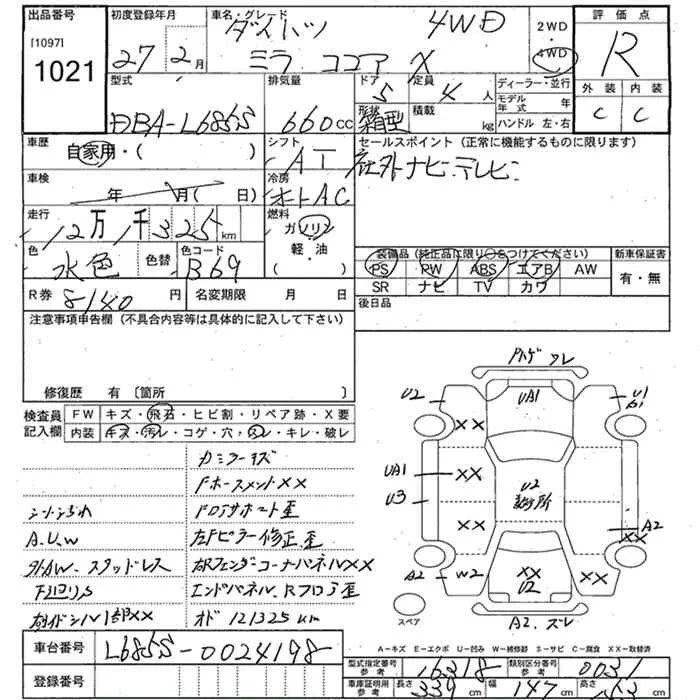 出品番号 初度登録年月 車名・グレード 評価点
[1097] 1021
27年2月 ダイハツ 4WD 2WD・4WD R
ミラ ココア X
型式 排気量 ドア 定員 ディーラー・並行 外装 内装
DBA-L686S 660cc 5 4人 モデル年式 年 C C
形状 箱型 積載 kg ハンドル 左・右
車歴 シフト セールスポイント (正常に機能するものに限ります)
自家用・( ) AT 社外ナビ・テレビ
車検 冷房
年 月( 日) オートAC
走行 燃料
12万1千325km ガソリン
軽・油
( )
色 色替 色コード
水色 B69
装備品 (純正品に限り○をつけてください) 新車保証書
PS PW ABS エアB AW 有・無
SR ナビ TV カワ
R券 8140円 名変期限 月 日 後日品
注意事項申告欄 (不具合内容等は具体的に記入して下さい)
修復歴 有 〔箇所 〕
検査員記入欄
FW キズ・飛石・ヒビ割・リペア跡・X要
内装 キズ・汚レ・コゲ・穴・スレ・キレ・破レ
FホースメントXX
シートよごれ FロアサポートE歪
A.U.W 左Fピラー修正、歪
外AW、スタッドレス 右RフェンダコーナーパネルXX
下廻りS エンドパネル、Rフロア歪
オド 121325km
車台番号 L686S-0024198
登録番号
U2 UA1 U1
XX
UA1 XX U2
U3
XX A2
XX
A2 W2 XX XX
U2
スペア A2、ズレ
A-キズ E-エクボ U-凹み W-補修跡 S-サビ C-腐食 XX-取替済
型式指定番号 参考 16318 類別区分番号 参考 0031
車庫証明用 参考 長さ 339cm 幅 147cm 高さ 163cm